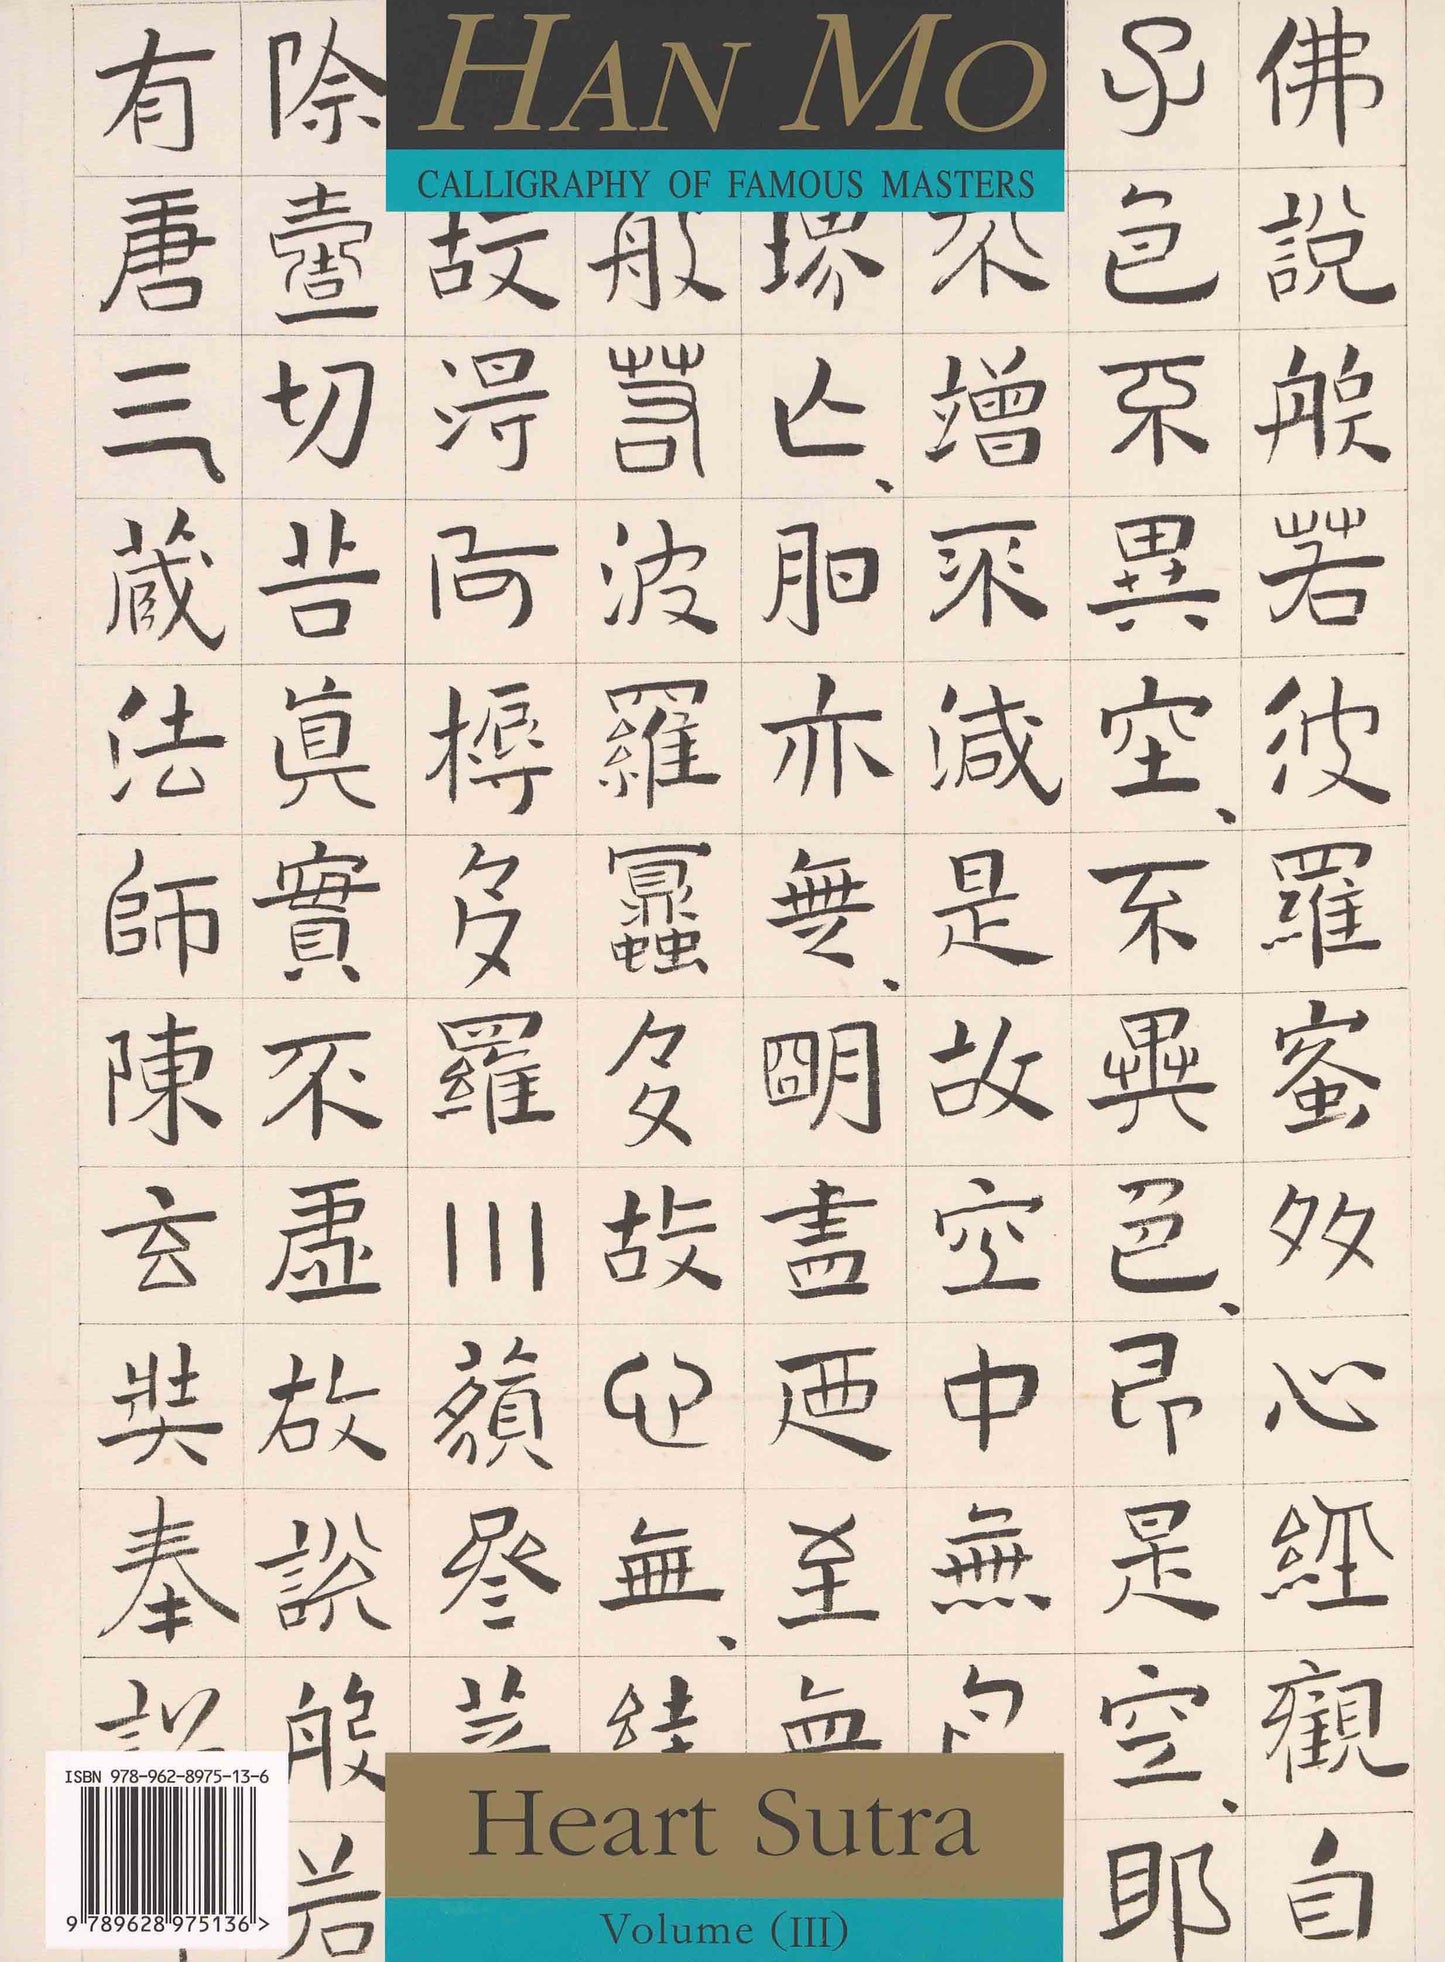 HAN MO
CALLIGRAPHY OF FAMOUS MASTERS
佛說般若波羅蜜多心經觀自
子色不異空不異色即是空耶
不增不減是故空中無
亦無明盡廼至無
般若波羅蜜多故心無
故得阿耨多羅三藐叄菩
除壹切苦眞實不虛故說般若
有唐三藏法師陳玄奘奉詔
Heart Sutra
Volume (III)
ISBN 978-962-8975-13-6
9 789628 975136 >